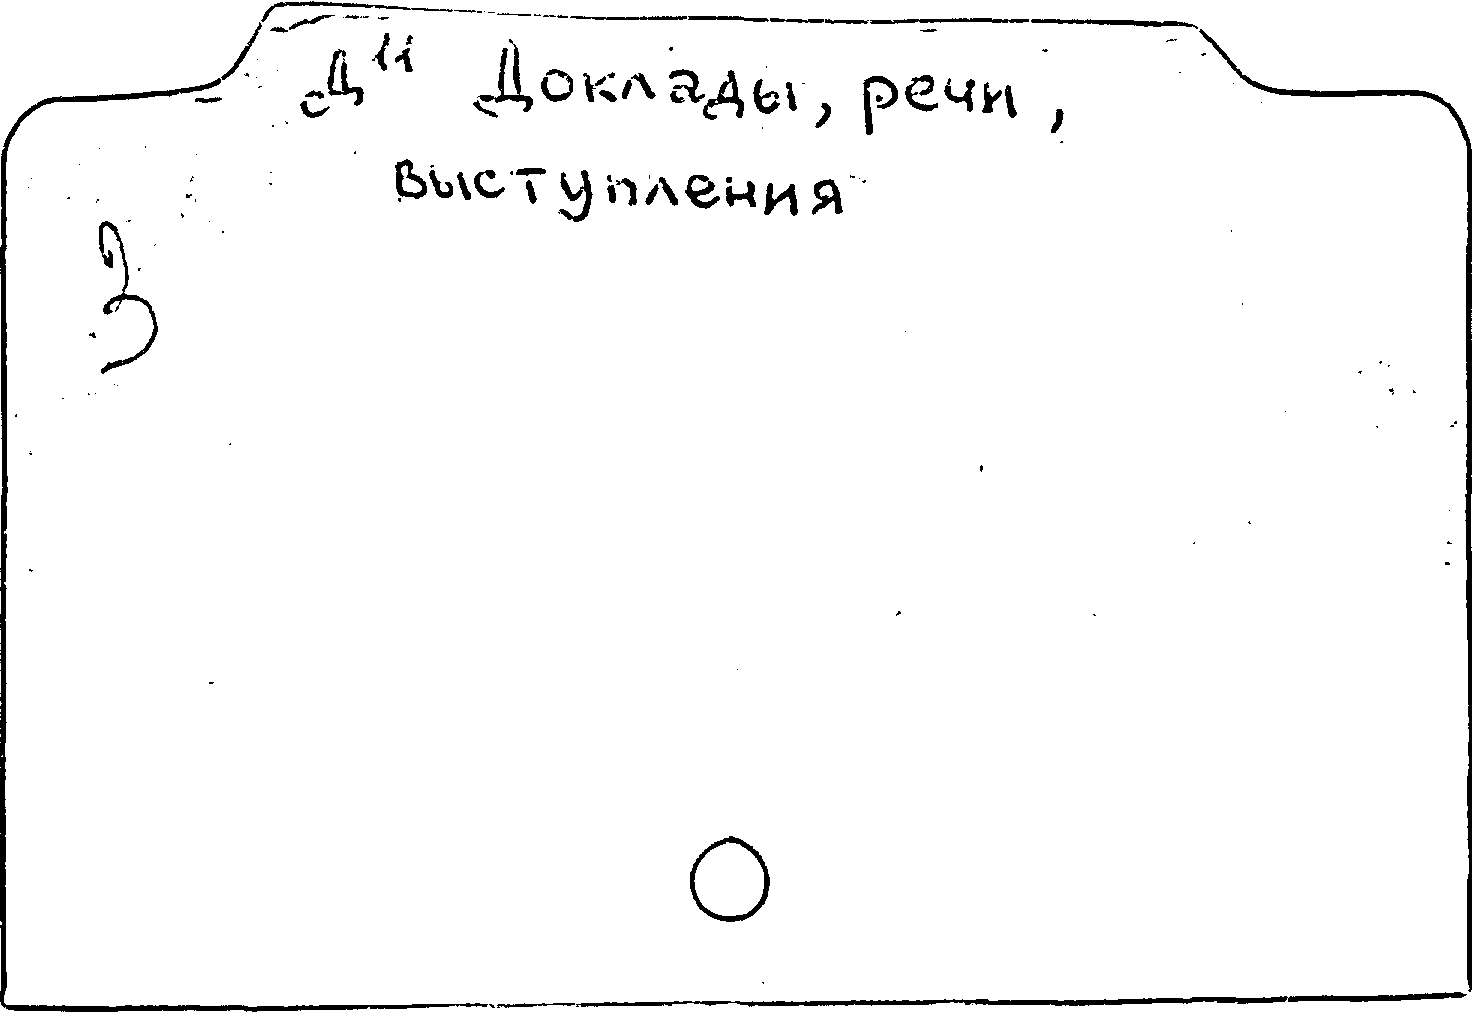 Д" Доклады, речи,
выступления
З